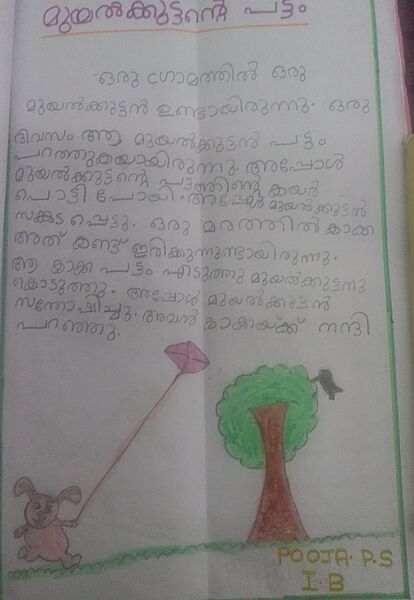 മുയൽക്കുട്ടന്റെ പട്ടം
ഒരു ഗ്രാമത്തിൽ ഒരു
മുയൽക്കുട്ടൻ ഉണ്ടായിരുന്നു. ഒരു
ദിവസം ആ മുയൽക്കുട്ടൻ പട്ടം
പറത്തുകയായിരുന്നു. അപ്പോൾ
മുയൽക്കുട്ടന്റെ പട്ടത്തിന്റെ കയർ
പൊട്ടി പോയി. അപ്പോൾ മുയൽക്കുട്ടൻ
സങ്കടപ്പെട്ടു. ഒരു മരത്തിൽ കാക്ക
അത് കണ്ട് ഇരിക്കുന്നുണ്ടായിരുന്നു.
ആ കാക്ക പട്ടം എടുത്തു മുയൽക്കുട്ടനു
കൊടുത്തു. അപ്പോൾ മുയൽക്കുട്ടൻ
സന്തോഷിച്ചു. അവൻ കാക്കയ്ക്ക് നന്ദി
പറഞ്ഞു.
POOJA. P.S
I. B